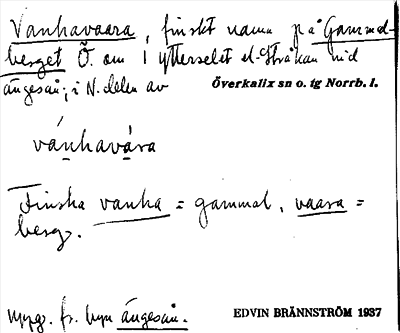 Vanhavaara, finskt namn på Gammel-
berget Ö. om i ytterselet el. Stråkan vid
ängesån; i N. delen av Överkalix sn o. tg Norrb. l.
vánhavára
Finska vanha = gammal, vaara =
berg.
Uppg. fr. byn ängesån.
EDVIN BRÄNNSTRÖM 1937